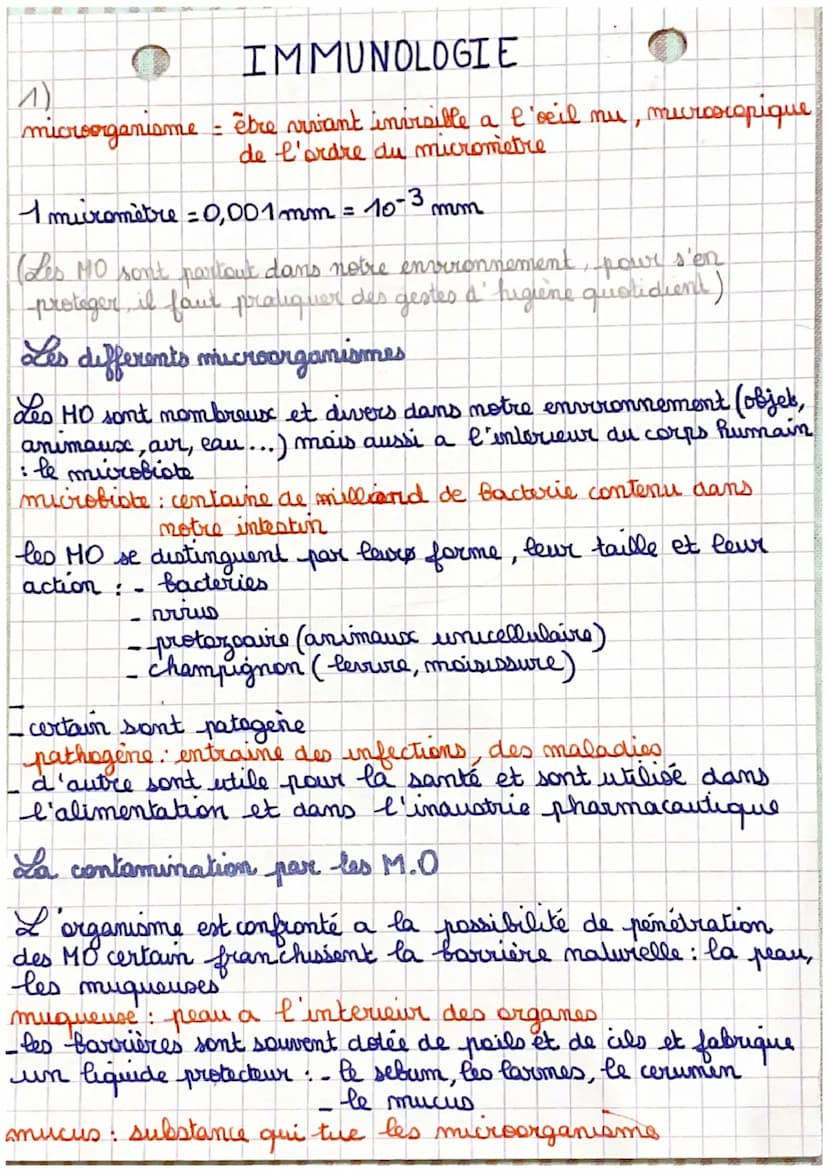 IMMUNOLOGIE
1)
microorganisme = être vivant invisible a l'oeil nu, microscopique
de l'ordre du micromètre
1 micromètre = 0,001 mm = 10⁻³ mm
(Les MO sont partout dans notre environnement, pour s'en
proteger, il faut pratiquer des gestes d'hugiène quotidient)
Les differents microorganismes
Les MO sont nombreux et divers dans notre environnement (objet,
animaux, air, eau...) mais aussi a l'interieur du corps humain
: le microbiote
microbiote : centaine de milliard de bacterie contenu dans
notre intestin
les MO se distinguent par leurs forme, leur taille et leur
action : - bacteries
- virus
- protozoaire (animaux unicellulaire)
- champignon (levure, moisissure)
- certain sont patogène
pathogène : entraine des infections, des maladies
- d'autre sont utile pour la santé et sont utilisé dans
l'alimentation et dans l'industrie pharmacautique
La contamination par les M.O
L'organisme est confronté a la possibilité de pénétration
des MO certain franchissent la barrière naturelle : la peau,
les muqueuses
muqueuse : peau a l'interieur des organes
- les barrières sont souvent dotée de poils et de cils et fabrique
un liquide protecteur : - le sebum, les larmes, le cerumen
- le mucus
mucus : substance qui tue les microorganisme